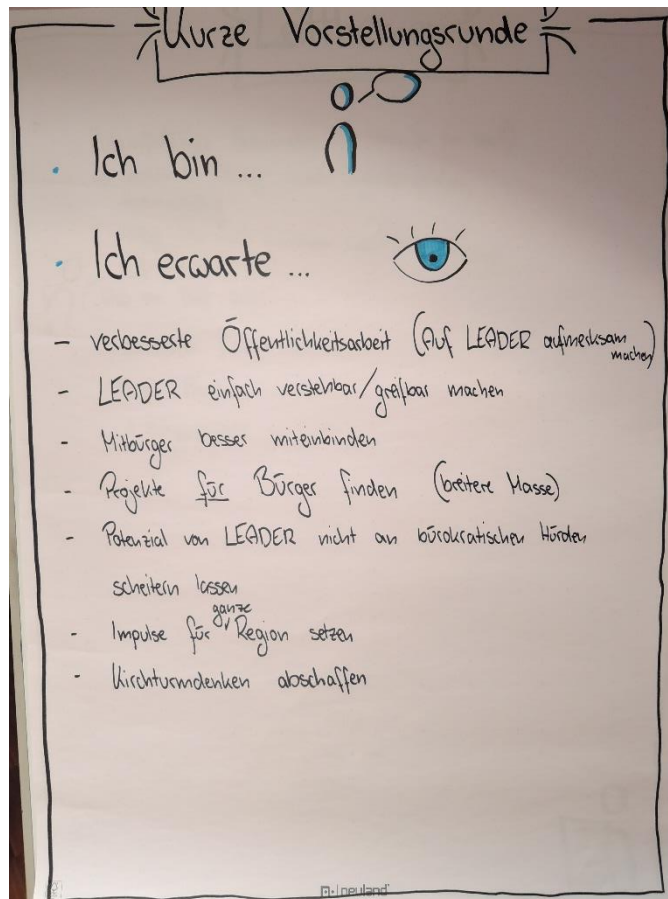 Kurze Vorstellungsrunde
• Ich bin ...
• Ich erwarte ...
– verbesserte Öffentlichkeitsarbeit (Auf LEADER aufmerksam machen)
- LEADER einfach verstehbar/greifbar machen
- Mitbürger besser miteinbinden
- Projekte für Bürger finden (breitere Masse)
- Potenzial von LEADER nicht an bürokratischen Hürden
scheitern lassen
- Impulse für ganze Region setzen
- Kirchturmdenken abschaffen
neuland